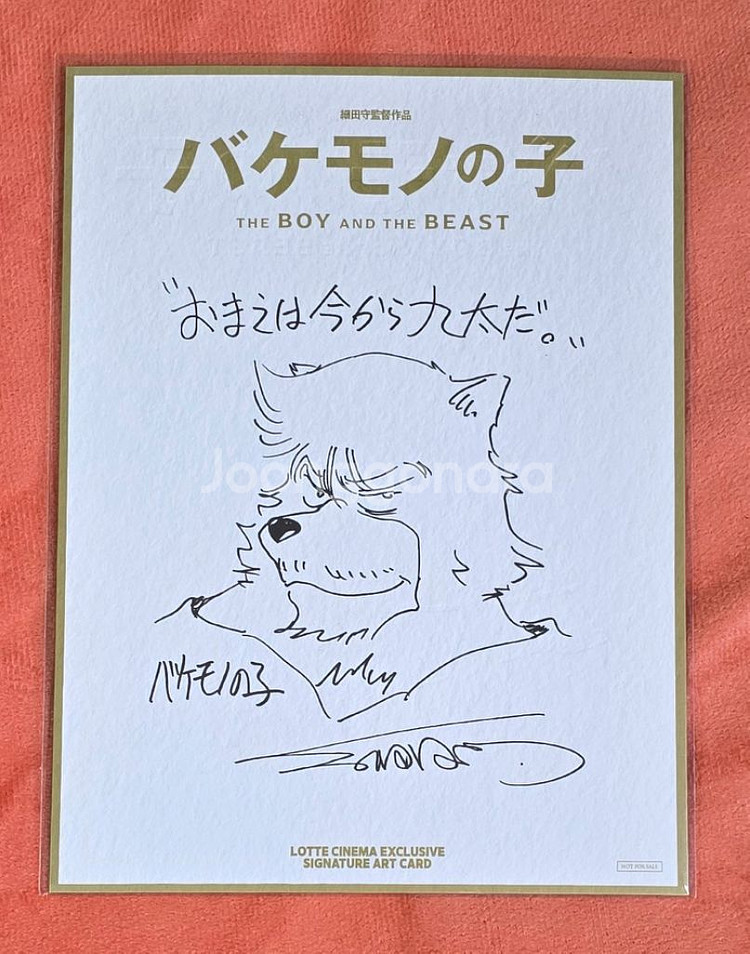 細田守監督作品
バケモノの子
THE BOY AND THE BEAST
"おまえは今から九太だ。"
Joonggonara
バケモノの子
LOTTE CINEMA EXCLUSIVE
SIGNATURE ART CARD
NOT FOR SALE